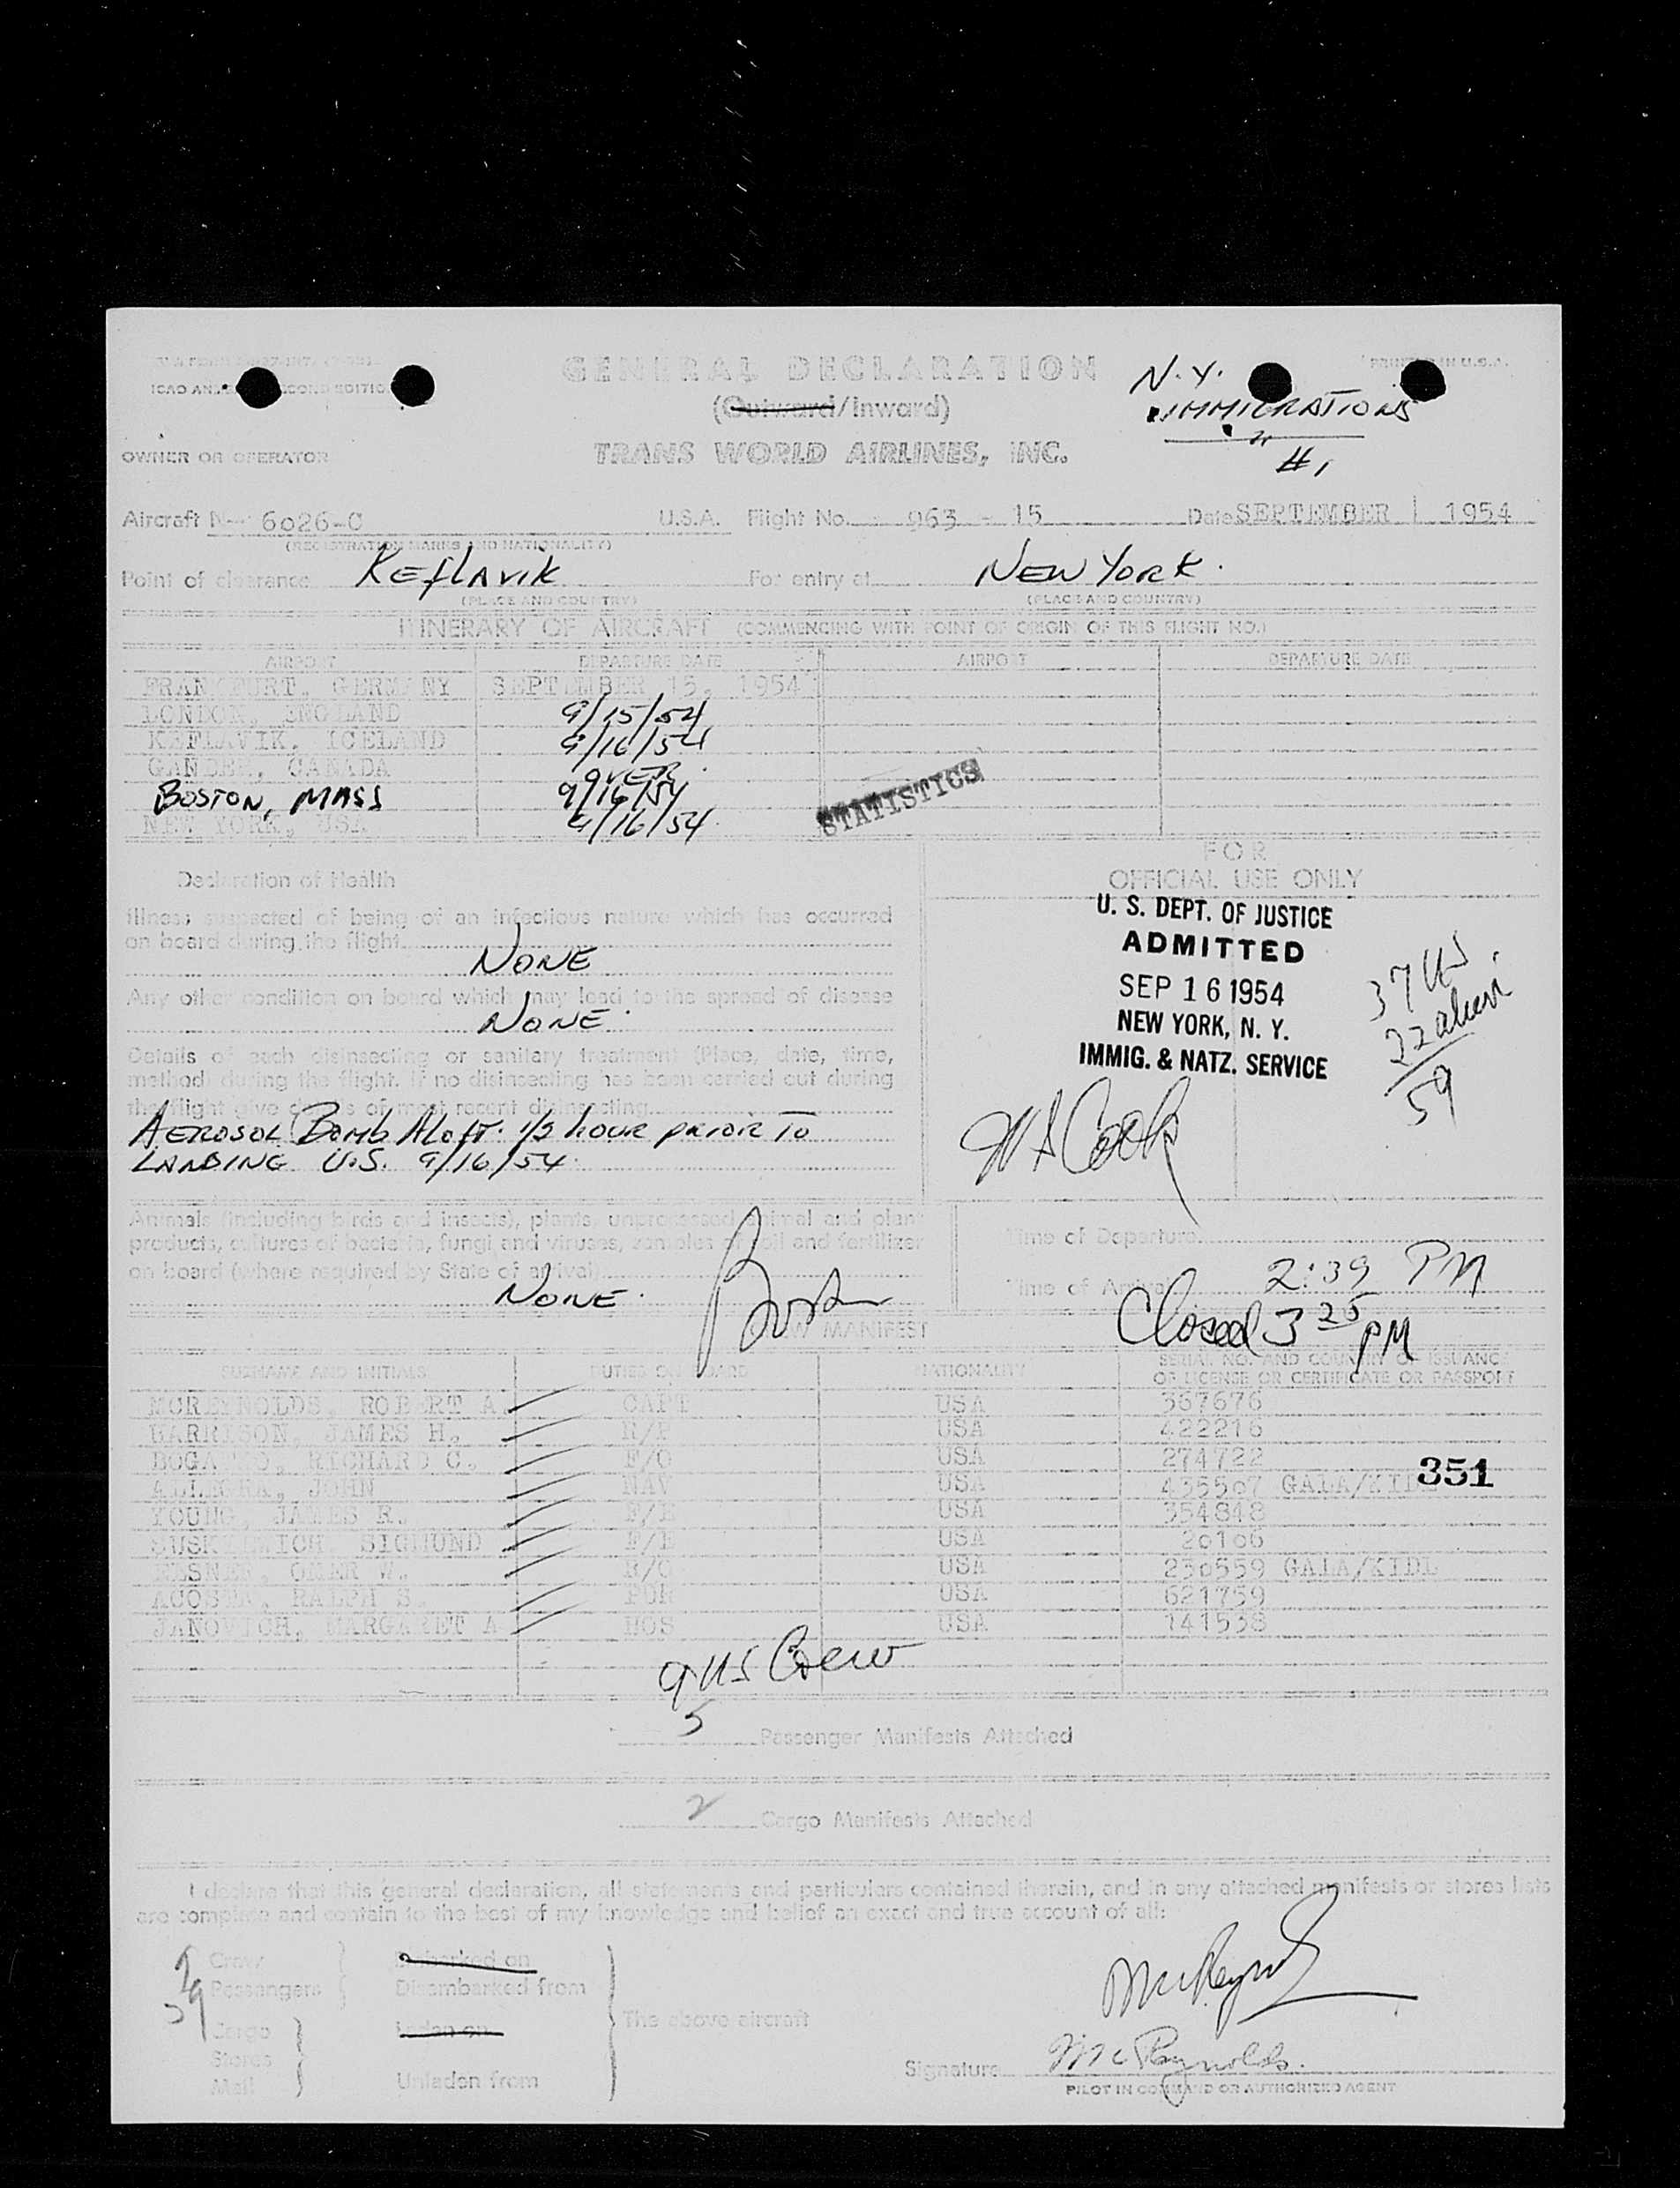 GENERAL DECLARATION
PRINTED IN U.S.A.
N.Y.
IMMIGRATIONS
#1
(Outward/Inward)
OWNER OR OPERATOR
TRANS WORLD AIRLINES, INC.
Aircraft N- 6026-C U.S.A. Flight No. 963 - 15 Date SEPTEMBER 1954
(REGISTRATION MARKS AND NATIONALITY)
Point of clearance KEFLAVIK For entry at NEW YORK.
(PLACE AND COUNTRY) (PLACE AND COUNTRY)
ITINERARY OF AIRCRAFT (COMMENCING WITH POINT OF ORIGIN OF THIS FLIGHT NO.)
AIRPORT DEPARTURE DATE AIRPORT DEPARTURE DATE
FRANKFURT, GERMANY SEPTEMBER 15, 1954
LONDON, ENGLAND 9/15/54
KEFLAVIK, ICELAND 9/16/54
GANDER, CANADA OVER
BOSTON, MASS 9/16/54
NEW YORK, USA 9/16/54
STATISTICS
FOR
OFFICIAL USE ONLY
Declaration of Health
Illness suspected of being of an infectious nature which has occurred
on board during the flight
NONE
Any other condition on board which may lead to the spread of disease
NONE
Details of each disinsecting or sanitary treatment (Place, date, time,
method) during the flight. If no disinsecting has been carried out during
the flight give details of most recent disinsecting
AEROSOL BOMB ALOFT. 1/2 HOUR PRIOR TO
LANDING U.S. 9/16/54
U. S. DEPT. OF JUSTICE
ADMITTED
SEP 16 1954
NEW YORK, N. Y.
IMMIG. & NATZ. SERVICE
37 US
22 alien
59
Cook
Animals (including birds and insects), plants, unprocessed animal and plant
products, cultures of bacteria, fungi and viruses, samples of soil and fertilizer
on board (where required by State of arrival)
NONE
Time of Departure
Time of Arrival 2:39 PM
Closed 3 25 PM
CREW MANIFEST
SURNAME AND INITIALS DUTIES ON BOARD NATIONALITY SERIAL NO. AND COUNTRY OF ISSUANCE
OF LICENSE OR CERTIFICATE OR PASSPORT
MCREYNOLDS, ROBERT A. CAPT USA 367676
HARRISON, JAMES H. USA 422216
RICHARD C. F/O USA 274722
JOHN NAV USA 435507 GALA/KIDL
351
YOUNG, JAMES R. F/E USA 354848
SIGMUND F/E USA 20106
OMER W. USA 230559 GALA/KIDL
RALPH S. PUR USA 621759
JANOVICH, MARGARET A HOS USA 141538
9 US Crew
5 Passenger Manifests Attached
2 Cargo Manifests Attached
I declare that this general declaration, all statements and particulars contained therein, and in any attached manifests or stores lists
are complete and contain to the best of my knowledge and belief an exact and true account of all:
Crew Embarked on
Passengers Disembarked from
The above aircraft
Cargo Laden on
Stores
Mail Unladen from
McReynolds
Signature McReynolds.
PILOT IN COMMAND OR AUTHORIZED AGENT